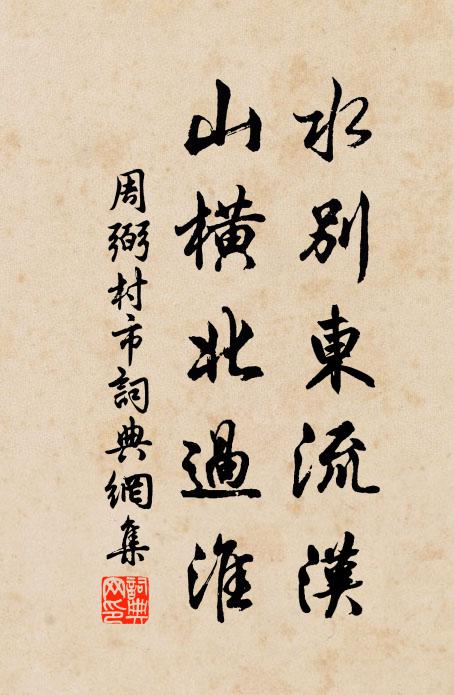 水別東流漢
山橫北過淮
周弼村市詞典網集
詞典